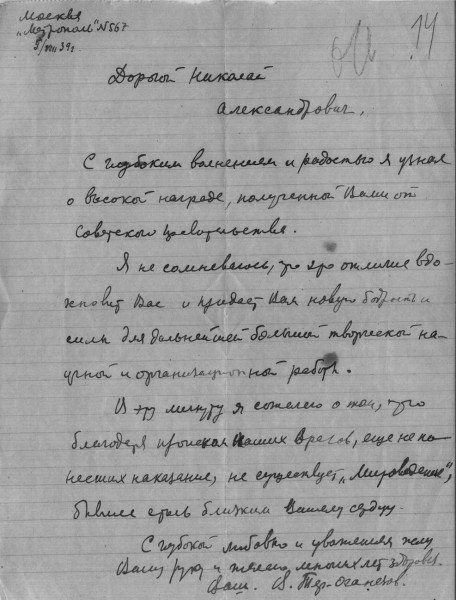 Москва
"Метрополь" N 567
5/VIII 39 г.
14
Дорогой Николай
Александрович,
С глубоким волнением и радостью я узнал
о высокой награде, полученной Вами от
Советского Правительства.
Я не сомневаюсь, что это отличие вдо-
хновит Вас и придаст Вам новую бодрость и
силы для дальнейшей большой творческой на-
учной и организационной работы.
В эту минуту я сожалею о том, что
благодаря проискам Наших врагов, еще не по-
несших наказание, не существует "Мироведение",
бывшее столь близким Вашему сердцу.
С глубокой любовью и уважением жму
Вашу руку и желаю многих лет здоровья.
Ваш В. Тер-Оганезов.